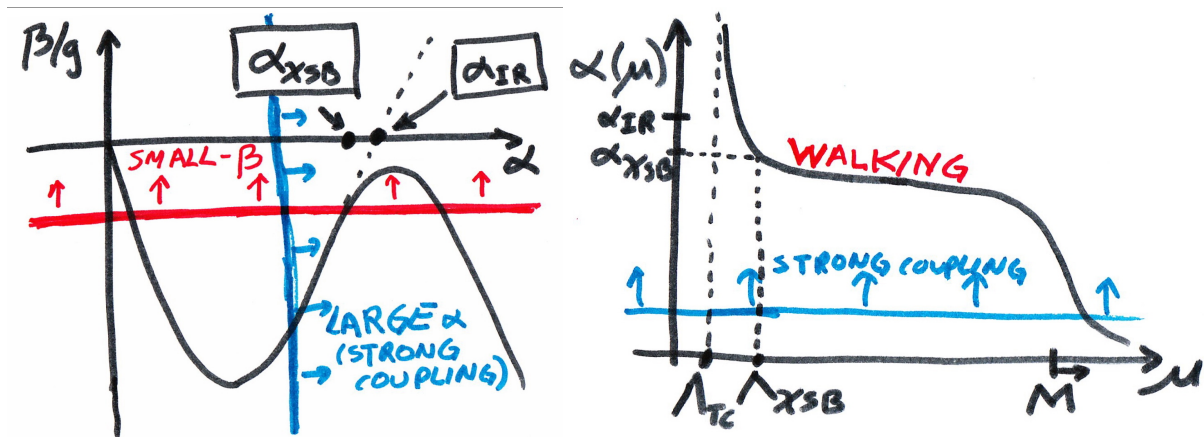 β/g
αχSB
αIR
α
SMALL-β
LARGE α
(STRONG
COUPLING)
α(μ)
αIR
αχSB
WALKING
STRONG COUPLING
ΛTC
ΛχSB
M
μ